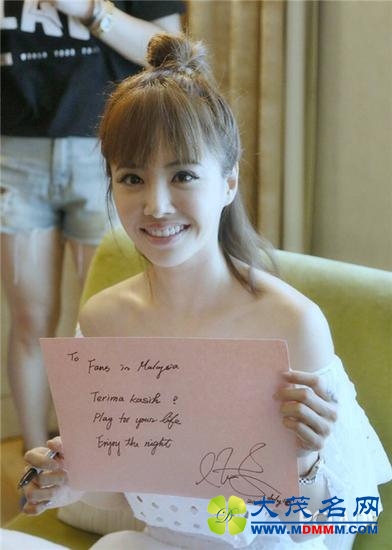 WORLD TOUR
To Fans in Malaysia
Terima Kasih ?
Play for your life
Enjoy the night
大茂名网
WWW.MDMMM.COM